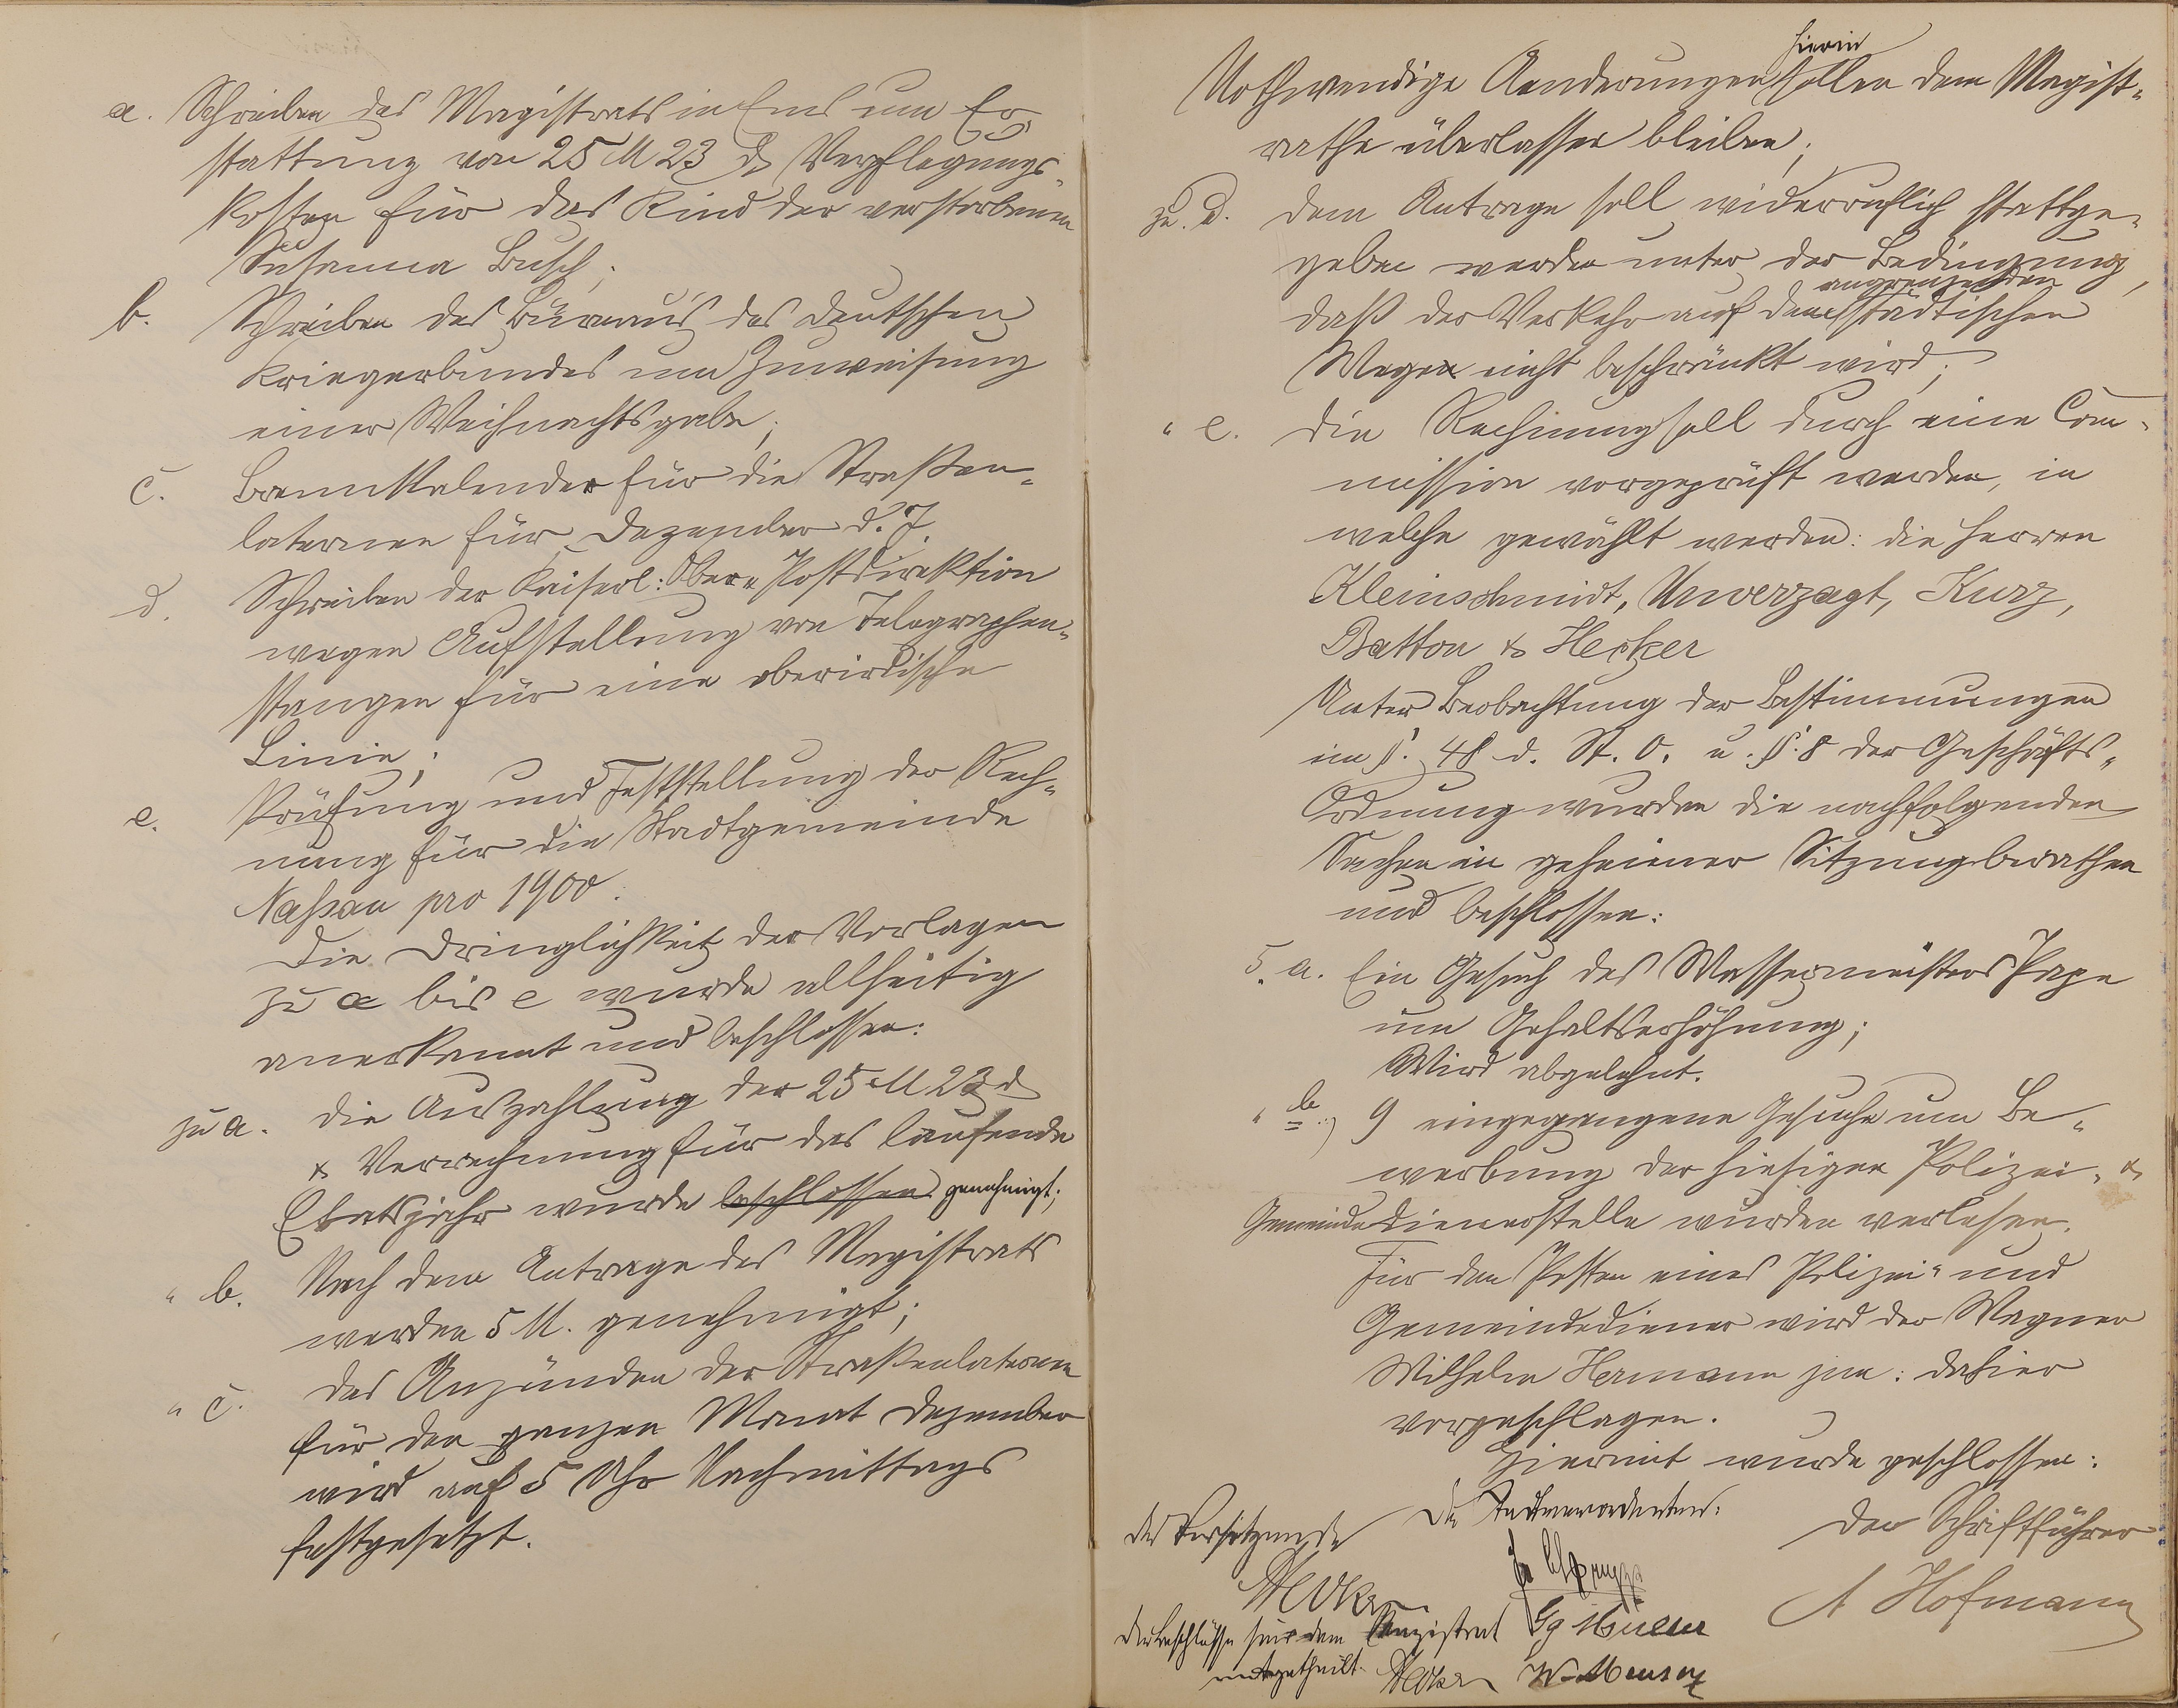 a. Schreiben des Magistrats in Ems um Er-
stattung von 25 M 23 ₰ Verpflegungs-
kosten für das Kind der verstorbenen
Susanna Busch;
b. Schreiben des Büreau's des deutschen
Kriegerbundes um Zuweisung
einer Weihnachtsgabe;
c. Brennkalender für die Straßen-
laternen für Dezember d. J.
d. Schreiben der Kaiserl: Ober-Postdirektion
wegen Aufstellung von Telegraphen-
stangen für eine oberirdische
Linie;
e. Prüfung und Feststellung der Rech-
nung für die Stadtgemeinde
Nassau pro 1900.
Die Dringlichkeit der Vorlagen
zu a bis e wurde allseitig
anerkannt und beschlossen:
zu a. die Auszahlung der 25 M 23 ₰
& Verrechnung für das laufende
Etatsjahr wurde beschlossen genehmigt;
" b. Nach dem Antrage des Magistrats
werden 5 M. genehmigt;
" c. das Anzünden der Straßenlaternen
für den ganzen Monat Dezember
wird auf 5 Uhr Nachmittags
festgesetzt.
Nothwendige Aenderungen hierin sollen dem Magist-
rathe überlassen bleiben;
zu. d. dem Antrage soll widerruflich stattge-
geben werden unter der Bedingung,
daß der Verkehr auf dem angrenzenden städtischen
Wegen nicht beschränkt wird;
" e. die Rechnung soll durch eine Com-
mission vorgeprüft werden, in
welche gewählt werden: die Herren
Kleinschmidt, Unverzagt, Kurz,
Batton & Hecker
Unter Beobachtung der Bestimmungen
im §. 48 d. St. O. u. §. 8 der Geschäfts-
Ordnung wurden die nachfolgenden
Sachen in geheimer Sitzung berathen
und beschlossen:
5. a. Ein Gesuch des Wassermeisters Pape
um Gehaltserhöhung;
Wird abgelehnt.
" b.) 9 eingegangene Gesuche um Be-
werbung der hiesigen Polizei- &
Gemeindedienerstelle wurden verlesen.
Für den Posten eines Polizei- und
Gemeindediener wird der Wagner
Wilhelm Hermann jun: dahier
vorgeschlagen.
Hiermit wurde geschlossen:
Der Vorsitzende Die Stadtverordneten: Der Schriftführer
A Hofmann
Die Beschlüsse sind dem Magistrat Gg Müller
mitgetheilt.